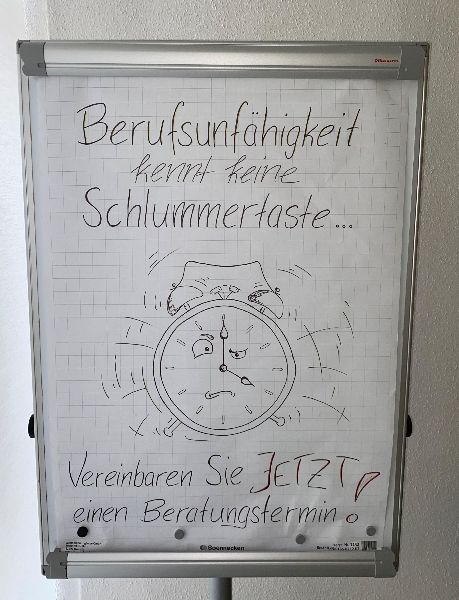 Berufsunfähigkeit
kennt keine
Schlummertaste...
Vereinbaren Sie JETZT
einen Beratungstermin!
Soennecken